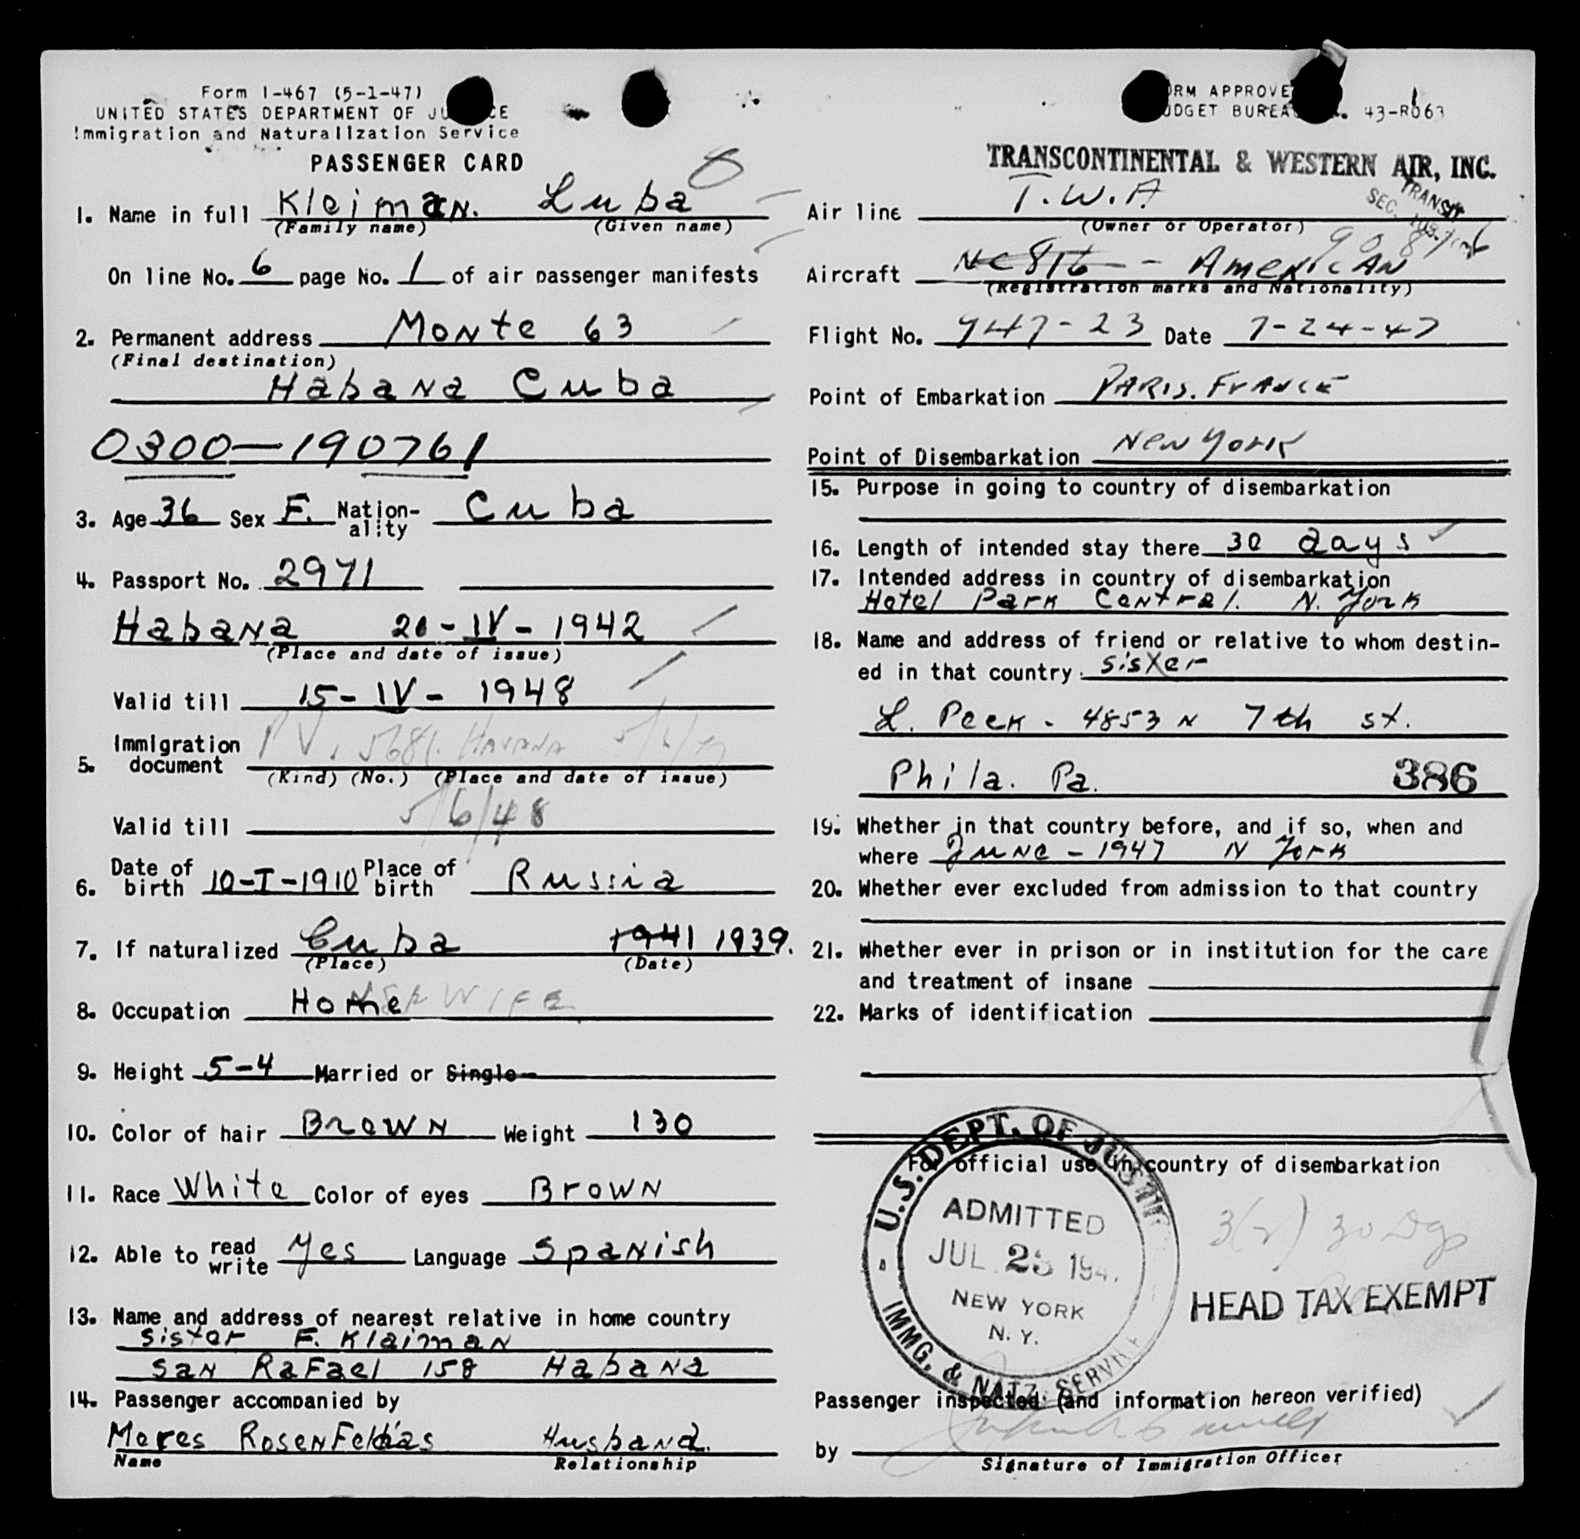 Form I-467 (5-1-47)
UNITED STATES DEPARTMENT OF
Immigration and Naturalization Service
PASSENGER CARD
1. Name in full Kleiman. Luba
(Family name) (Given name)
On line No. 6 page No. 1 of air passenger manifests
2. Permanent address Monte 63
(Final destination)
Habana Cuba
0300-190761
3. Age 36 Sex F. Nation-ality Cuba
4. Passport No. 2971
Habana 20-IV-1942
(Place and date of issue)
Valid till 15-IV-1948
5. Immigration document PV. 5686 Havana 5/6/47
(Kind) (No.) (Place and date of issue)
Valid till 5/6/48
6. Date of birth 10-I-1910 Place of birth Russia
7. If naturalized Cuba 1941 1939.
(Place) (Date)
8. Occupation Home WIFE
9. Height 5-4 Married or Single
10. Color of hair Brown Weight 130
11. Race White Color of eyes Brown
12. Able to read write Yes Language Spanish
13. Name and address of nearest relative in home country
Sister F. Klaiman
San Rafael 158 Habana
14. Passenger accompanied by
Husband.
Name Relationship
FORM APPROVED
BUDGET BUREAU 43-R063
TRANSCONTINENTAL & WESTERN AIR, INC.
TRANSIT
SEC.
Air line T.W.A
(Owner or Operator)
908
Aircraft NC 816 - American
(Registration marks and Nationality)
Flight No. 947-23 Date 7-24-47
Point of Embarkation Paris. France
Point of Disembarkation New York
15. Purpose in going to country of disembarkation
16. Length of intended stay there 30 days
17. Intended address in country of disembarkation
Hotel Park Central. N. York
18. Name and address of friend or relative to whom destin-
ed in that country. sister
L. Peck - 4853 N 7th st.
Phila. Pa. 386
19. Whether in that country before, and if so, when and
where June-1947 N York
20. Whether ever excluded from admission to that country
21. Whether ever in prison or in institution for the care
and treatment of insane
22. Marks of identification
For official use in country of disembarkation
U.S. DEPT. OF JUSTICE
ADMITTED
JUL 25 194
NEW YORK
N. Y.
IMMG. & NATZ. SERVICE
3(2) 30 Dys
HEAD TAX EXEMPT
Passenger inspected (and information hereon verified)
by
Signature of Immigration Officer